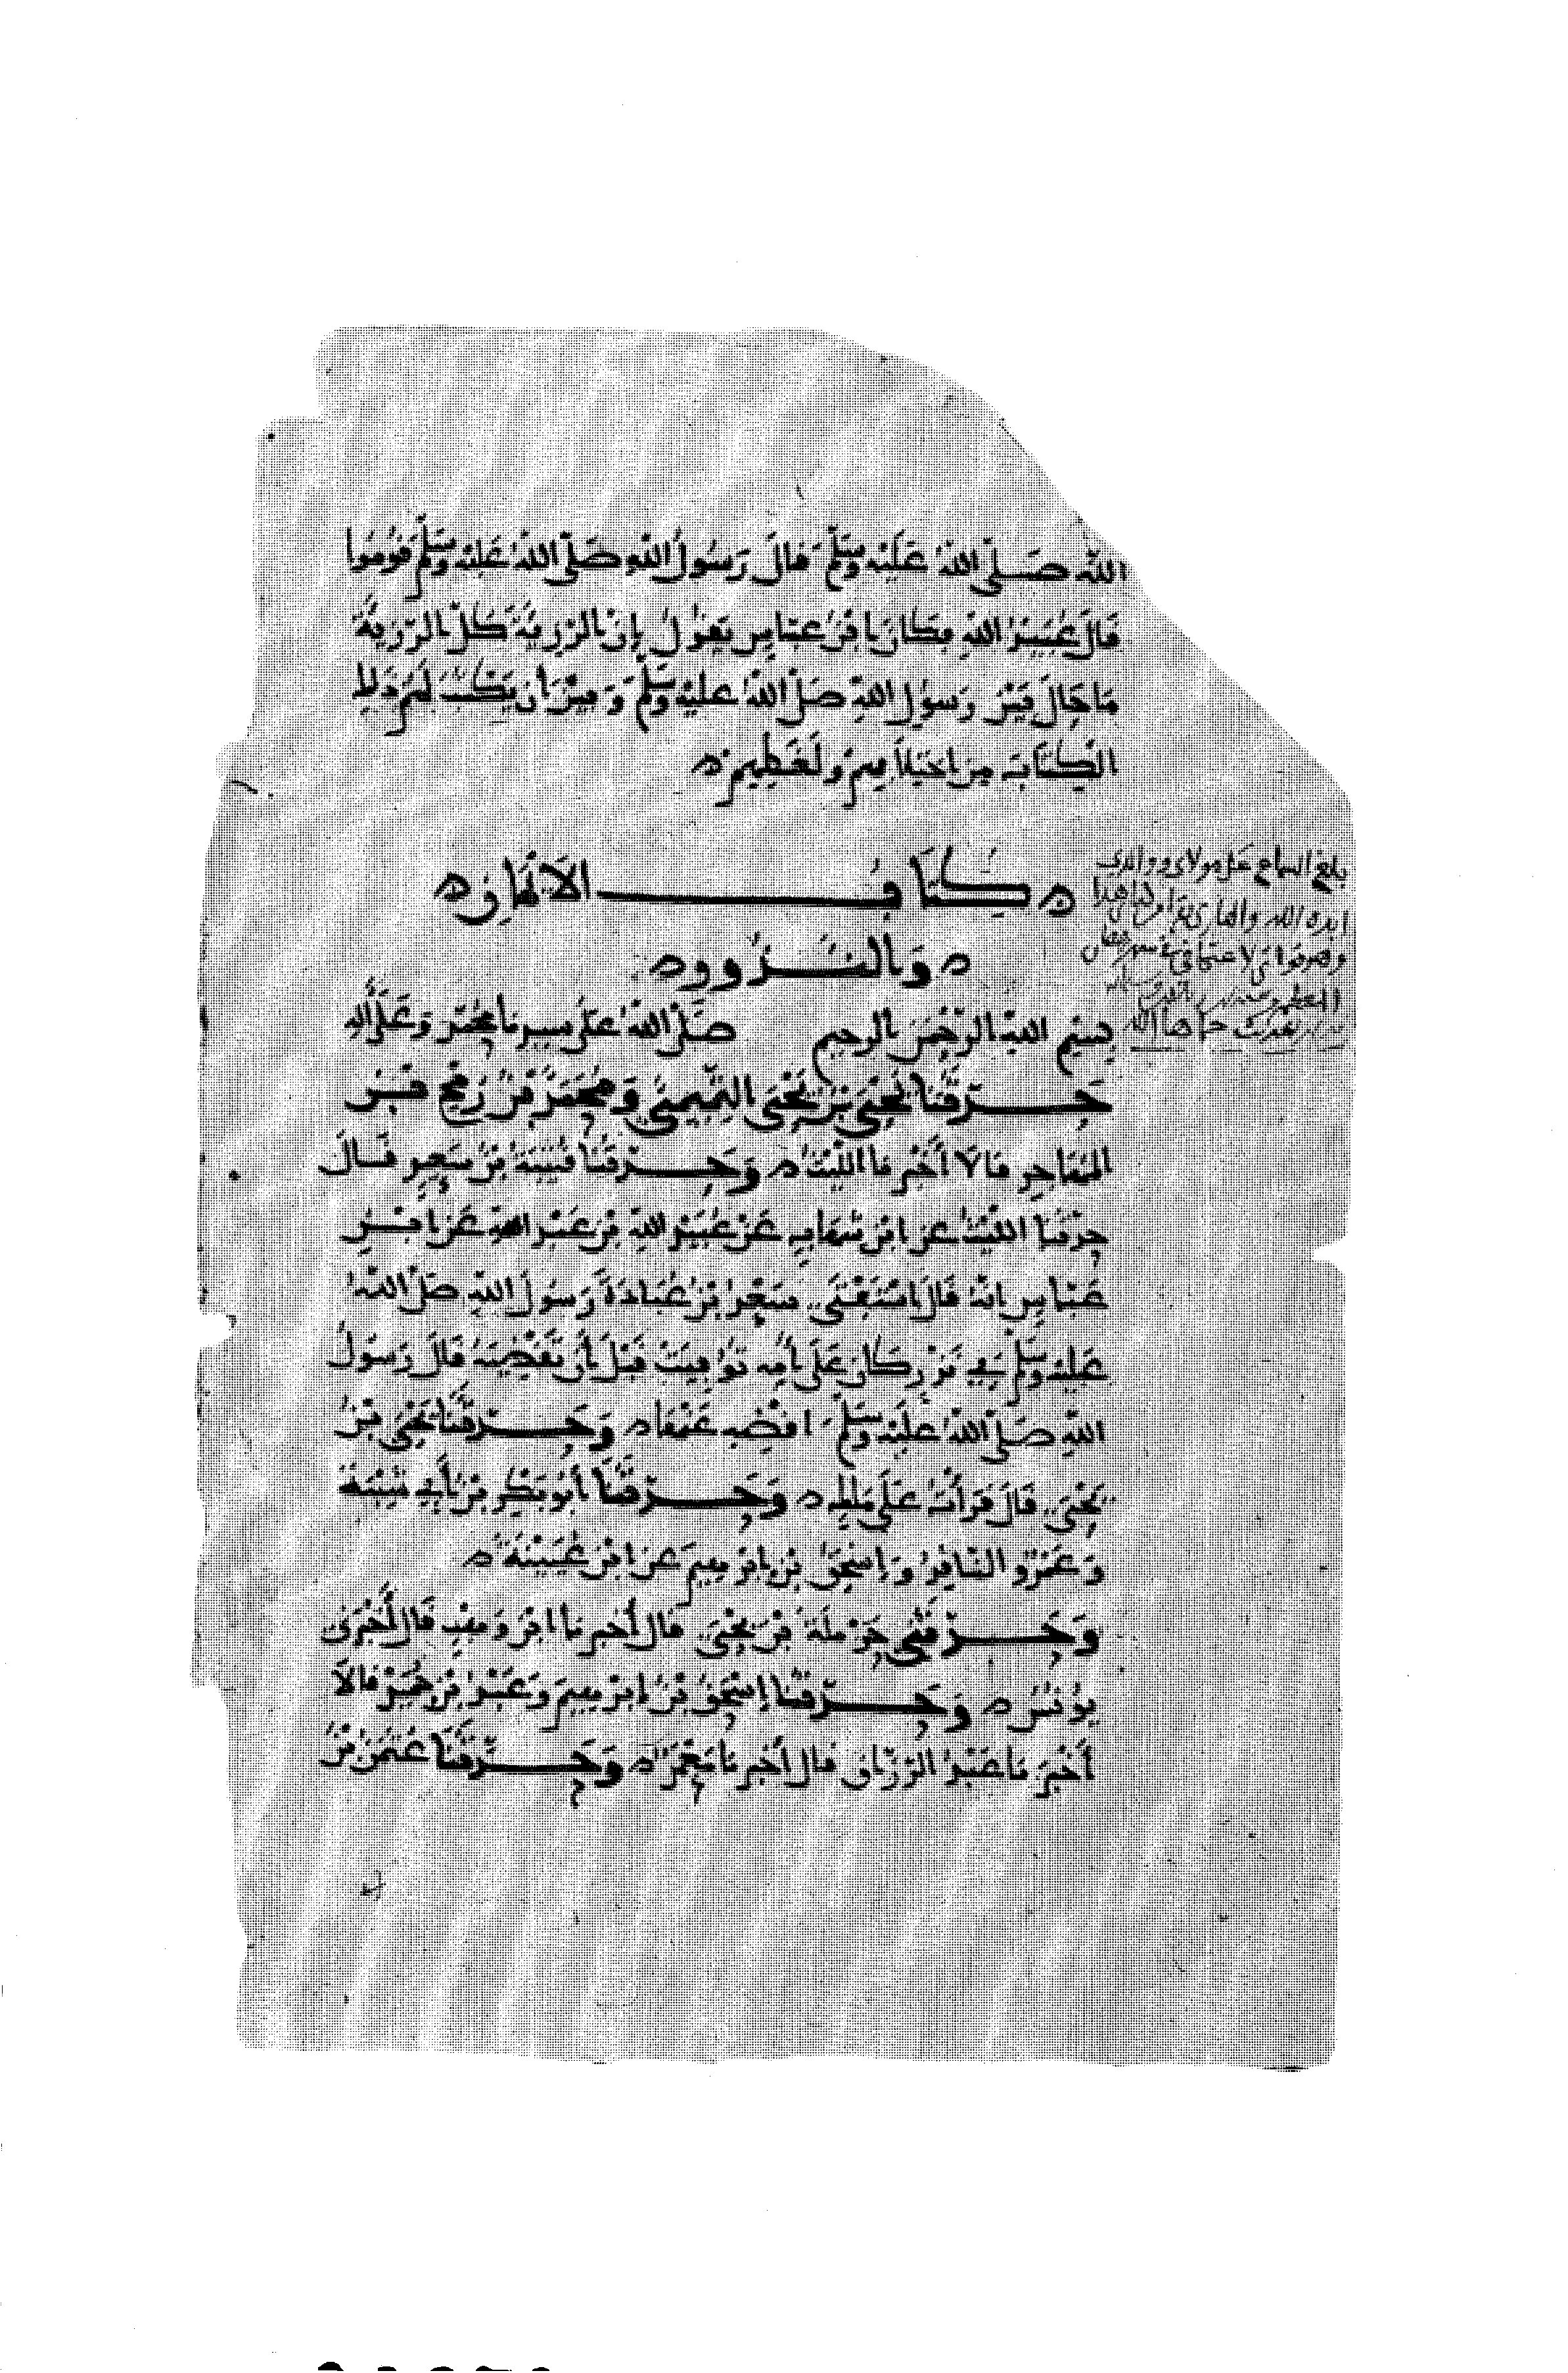 الله صَلَّى اللهُ عَلَيْهِ وَسَلَّمَ قَالَ رَسُولُ اللهِ صَلَّى اللهُ عَلَيْهِ وَسَلَّمَ قُومُوا
قَالَ عُبَيْدُ اللهِ فكَانَ ابْنُ عبَّاسٍ يَقُولُ إِنّ الرّزِيَّةَ كُلَّ الرّزِيَّةِ
مَا حَالَ بَيْنَ رَسُولِ اللهِ صَلَّى اللهُ عليْهِ وَسَلَّمَ وَبَيْنَ أن يَكْتُبَ لَهُمْ ذَلِكَ
الْكِتَابَ مِن اختِلَافِهِمْ وَلَغَطِهِمْ ه
ه كِتَابُ الْأَيْمَانِ ه
ه وَالنُّذُورِ ه
بِسْمِ اللهِ الرَّحْمَنِ الرحِيمِ صَلَّى اللهُ عَلَى سَيِّدِنَا مُحَمَّدٍ وَعَلَى آلِهِ
حَدّثَنَا يَحْيَى بْنُ يَحْيَى التَّمِيمِيُّ وَمُحَمَّدُ بْنُ رُمْحِ بْنِ
المُهَاجِرِ قَالَا أَخْبَرنَا اللَّيْثُ ه وَحَدّثَنَا قُتَيْبَةُ بْنُ سَعِيدٍ قَالَ
حَدَّثَنَا اللَّيْثُ عن ابْنِ شِهَابٍ عَنْ عُبَيْدِ اللهِ بْنِ عَبْدِ اللهِ عَنِ ابْنِ
عَبّاسٍ انّهُ قَالَ اسْتَفْتَى سَعْدُ بْنُ عُبَادَةَ رَسُولَ اللهِ صَلَّى اللهُ
عَلَيْهِ وَسَلَّمَ فِي نَذْرٍ كَانَ عَلَى أُمِّهِ تُوُفِّيَتْ قَبْلَ أَنْ تَقْضِيَهُ قَالَ رَسُولُ
اللهِ صَلَّى اللهُ عَلَيْهِ وَسَلَّمَ اقْضِهِ عَنْهَا ه وَحَدّثَنَا يَحْيَى بْنُ
يَحْيَى قَالَ قَرَأْتُ عَلَى مَلِكٍ ه وَحَدّثَنَا أَبُو بَكْرِ بْنُ أَبِي شَيْبَةَ
وَعَمْرٌو النَّاقِدُ وَإِسْحَقُ بْنُ إبْرَهِيمَ عَنِ ابْنِ عُيَيْنَةَ ه
وَحَدّثَنِي حَرْمَلَةُ بْنُ يَحْيَى قَالَ أَخبرنَا ابْنُ وَهْبٍ قَالَ أَخْبَرَنِي
يُونُسُ ه وَحَدّثَنَا إِسْحَقُ بْنُ ابْرَهِيمَ وَعَبْدُ بْنُ حُمَيْدٍ قَالَا
أَخْبَرنَا عَبْدُ الرَّزّاقِ قَالَ أَخْبَرنَا مَعْمَرٌ ه وَحَدّثَنَا عُثْمَنُ بْنُ
بلغ السماع على مولاي ووالدي
ايده الله